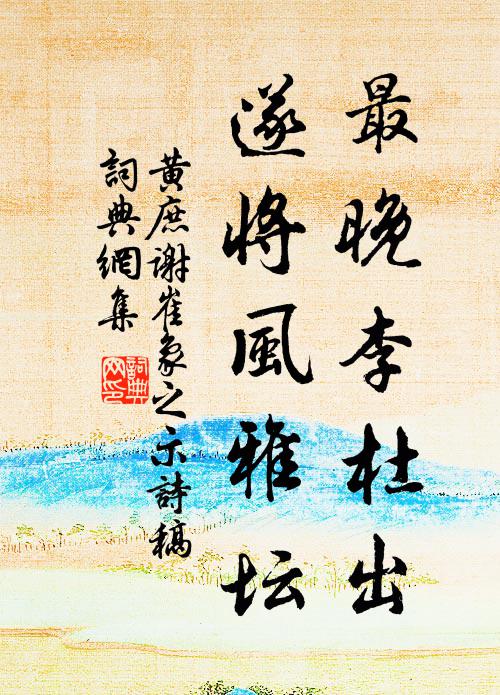 最晚李杜出
遂將風雅坛
黃庶謝崔象之示詩稿
詞典網集
詞典网印